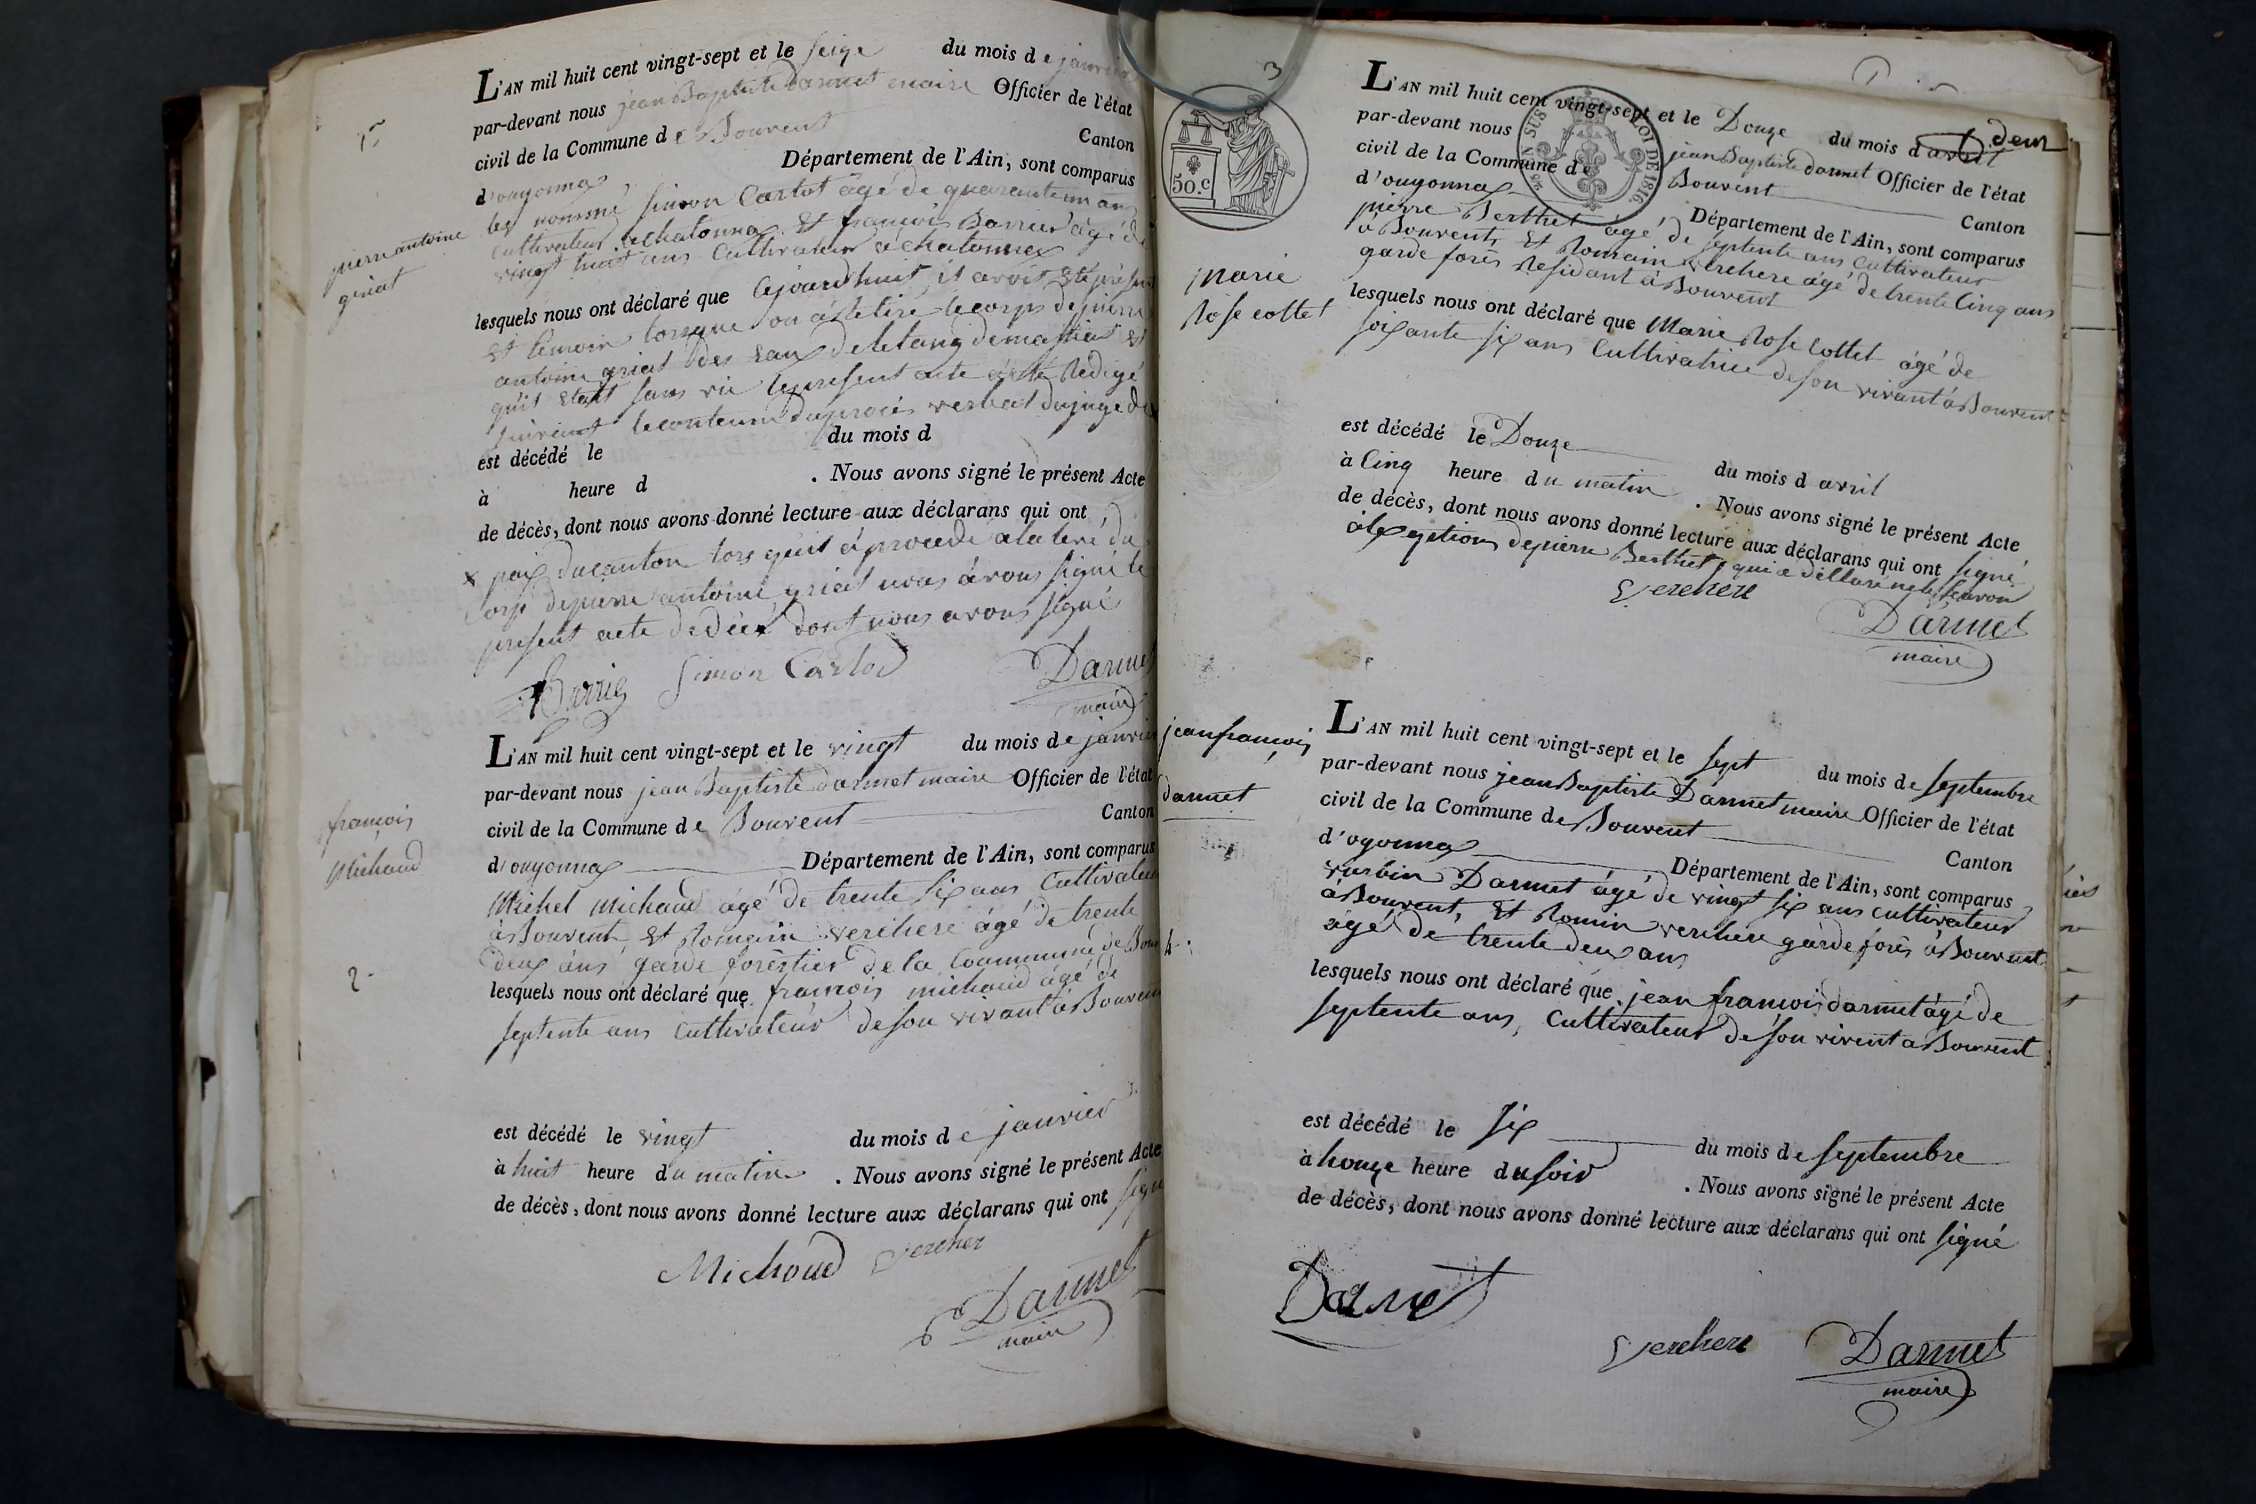 1er
pierre antoine
griat
L'AN mil huit cent vingt-sept et le seize du mois de janvier
par-devant nous jean Baptiste Darmet maire Officier de l'état
civil de la Commune de Bouvent Canton
d'ouyonnax Département de l'Ain, sont comparus
les nommé simon Carlod âgé de quarante un ans
cultivateur a chatonnax Et françois Barrier âgé de
vingt huit ans Cultivateur a chatonnax
lesquels nous ont déclaré que Cejourd'huit, il avoit Eté présent
Et temoin lorsque on á Retiré le corps de pierre
antoine griat des Eaux de letang de mastiat Et
qu'il Etait sans vie le present acte a été Rédigé
suivant le contenu du procès verbal du juge de
est décédé le du mois d
à heure d . Nous avons signé le présent Acte
de décès, dont nous avons donné lecture aux déclarans qui ont
x paix du canton lors qu'il á procédé a la levé du
Corp de pierre antoine griat nous avons signé le
present acte de décè dont nous avons signé
Barrie Simon Carlod Darmet
maire
françois
Michaud
2
L'AN mil huit cent vingt-sept et le vingt du mois de janvier
par-devant nous jean Baptiste Darmet maire Officier de l'état
civil de la Commune de Bouvent Canton
d'ouyonnax Département de l'Ain, sont comparus
Michel Michaud âgé de trente six ans Cultivateur
à Bouvent, Et Romain verchere âgé de trente
deux ans garde forêstier de la Commune de Bouv
lesquels nous ont déclaré que françois michaud âgé de
septente ans cultivateur de son vivant à Bouvent
est décédé le vingt du mois de janvier
à huit heure du matin . Nous avons signé le présent Acte
de décès, dont nous avons donné lecture aux déclarans qui ont signé
Michoud Vercher
Darmet
maire
3
50.C
EN SUS LOI DE 1816.
deux
marie
Rose cottet
L'AN mil huit cent vingt-sept et le Douze du mois d avril
par-devant nous jean Baptiste Darmet Officier de l'état
civil de la Commune de Bouvent Canton
d'ouyonnax Département de l'Ain, sont comparus
pierre Berthet âgé de septente ans cultivateur
à Bouvent, Et Romain verchere âgé de trente Cinq ans
garde forès Residant à Bouvent
lesquels nous ont déclaré que Marie Rose Cottet âgé de
soixante six ans Cultivatrice de son vivant à Bouvent
est décédé le Douze du mois d avril
à Cinq heure du matin . Nous avons signé le présent Acte
de décès, dont nous avons donné lecture aux déclarans qui ont signé
à lexception de pierre Berthet, qui a déllaré ne le savoir
Verchere
Darmet
maire
jean françois
darmet
4
L'AN mil huit cent vingt-sept et le sept du mois de septembre
par-devant nous jean Baptiste Darmet maire Officier de l'état
civil de la Commune de Bouvent Canton
d'oyonnax Département de l'Ain, sont comparus
vurbin Darmet âgé de vingt six ans cultivateur
à Bouvent, Et Romin verchere garde forès à Bouvent
âgé de trente deux ans
lesquels nous ont déclaré que jean françois darmet âgé de
septente ans, Cultivateur de son vivent a Bouvent
est décédé le six du mois de septembre
à honze heure du soir . Nous avons signé le présent Acte
de décès, dont nous avons donné lecture aux déclarans qui ont signé
Darmet
Verchere Darmet
maire